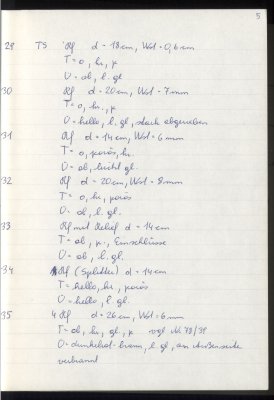 5
29 TS Rf d = 18 cm, Wst = 0,6 cm
T = o, hr, p
O = ob, l. gl
30 Rf d = 20 cm, Wst = 7 mm
T = o, hr., p
O = hello, l. gl, stark abgerieben
31 Rf d = 14 cm, Wst = 6 mm
T = o, porös, hr.
O = ob, leicht gl.
32 Rf d = 20 cm, Wst = 8 mm
T = o, hr, porös
O = ob, l. gl.
33 Rf mit Relief d = 14 cm
T = ob, p., Einschlüsse
O = ob, l. gl.
34 Rf (Splitter) d = 14 cm
T = hello, hr, porös
O = hello, l gl.
35 4 Rf d = 26 cm, Wst = 6 mm
T = ob, hr, gl., p vgl N. 78/31
O = dunkelrot-braun, l. gl, an Außenseite
verbrannt